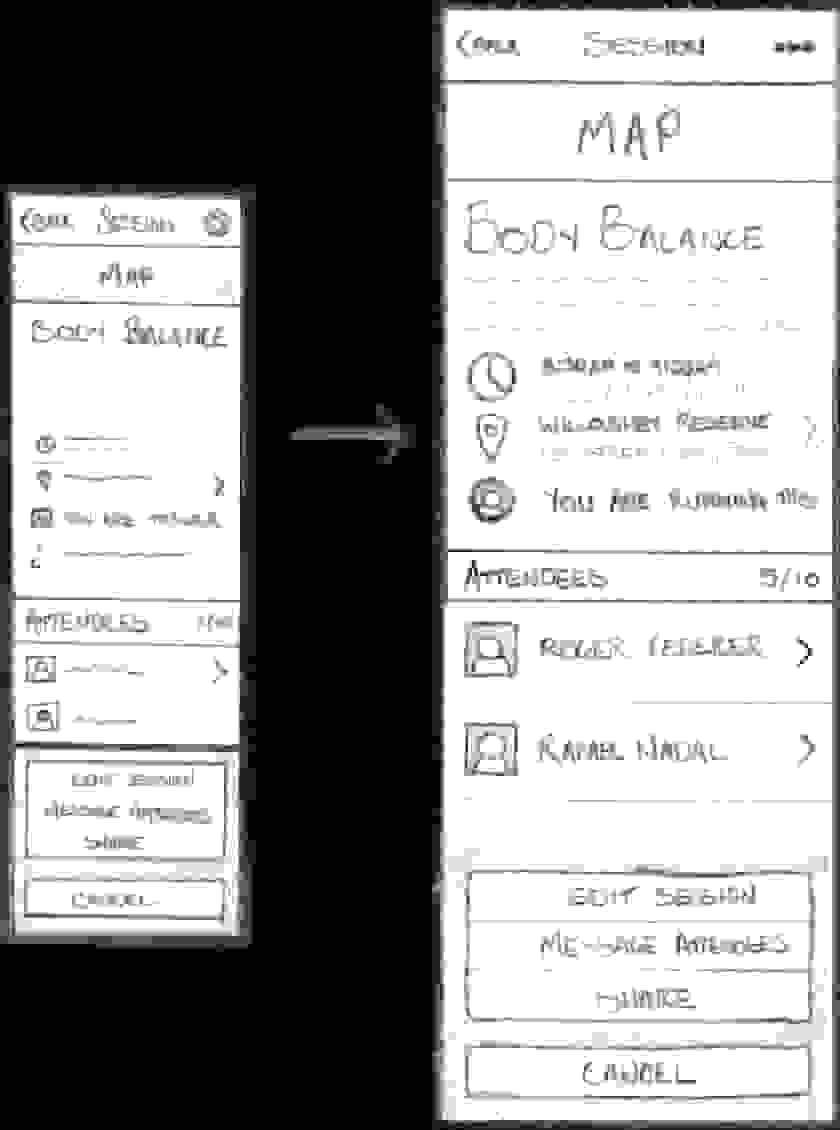 SESSION
MAP
BODY BALANCE
YOU ARE
ATTENDEES
EDIT SESSION
MESSAGE ATTENDEES
SHARE
CANCEL
SESSION
MAP
BODY BALANCE
RESERVE
YOU ARE RUNNING THIS
ATTENDEES 5/10
ROGER FEDERER
RAFAEL NADAL
EDIT SESSION
MESSAGE ATTENDEES
SHARE
CANCEL